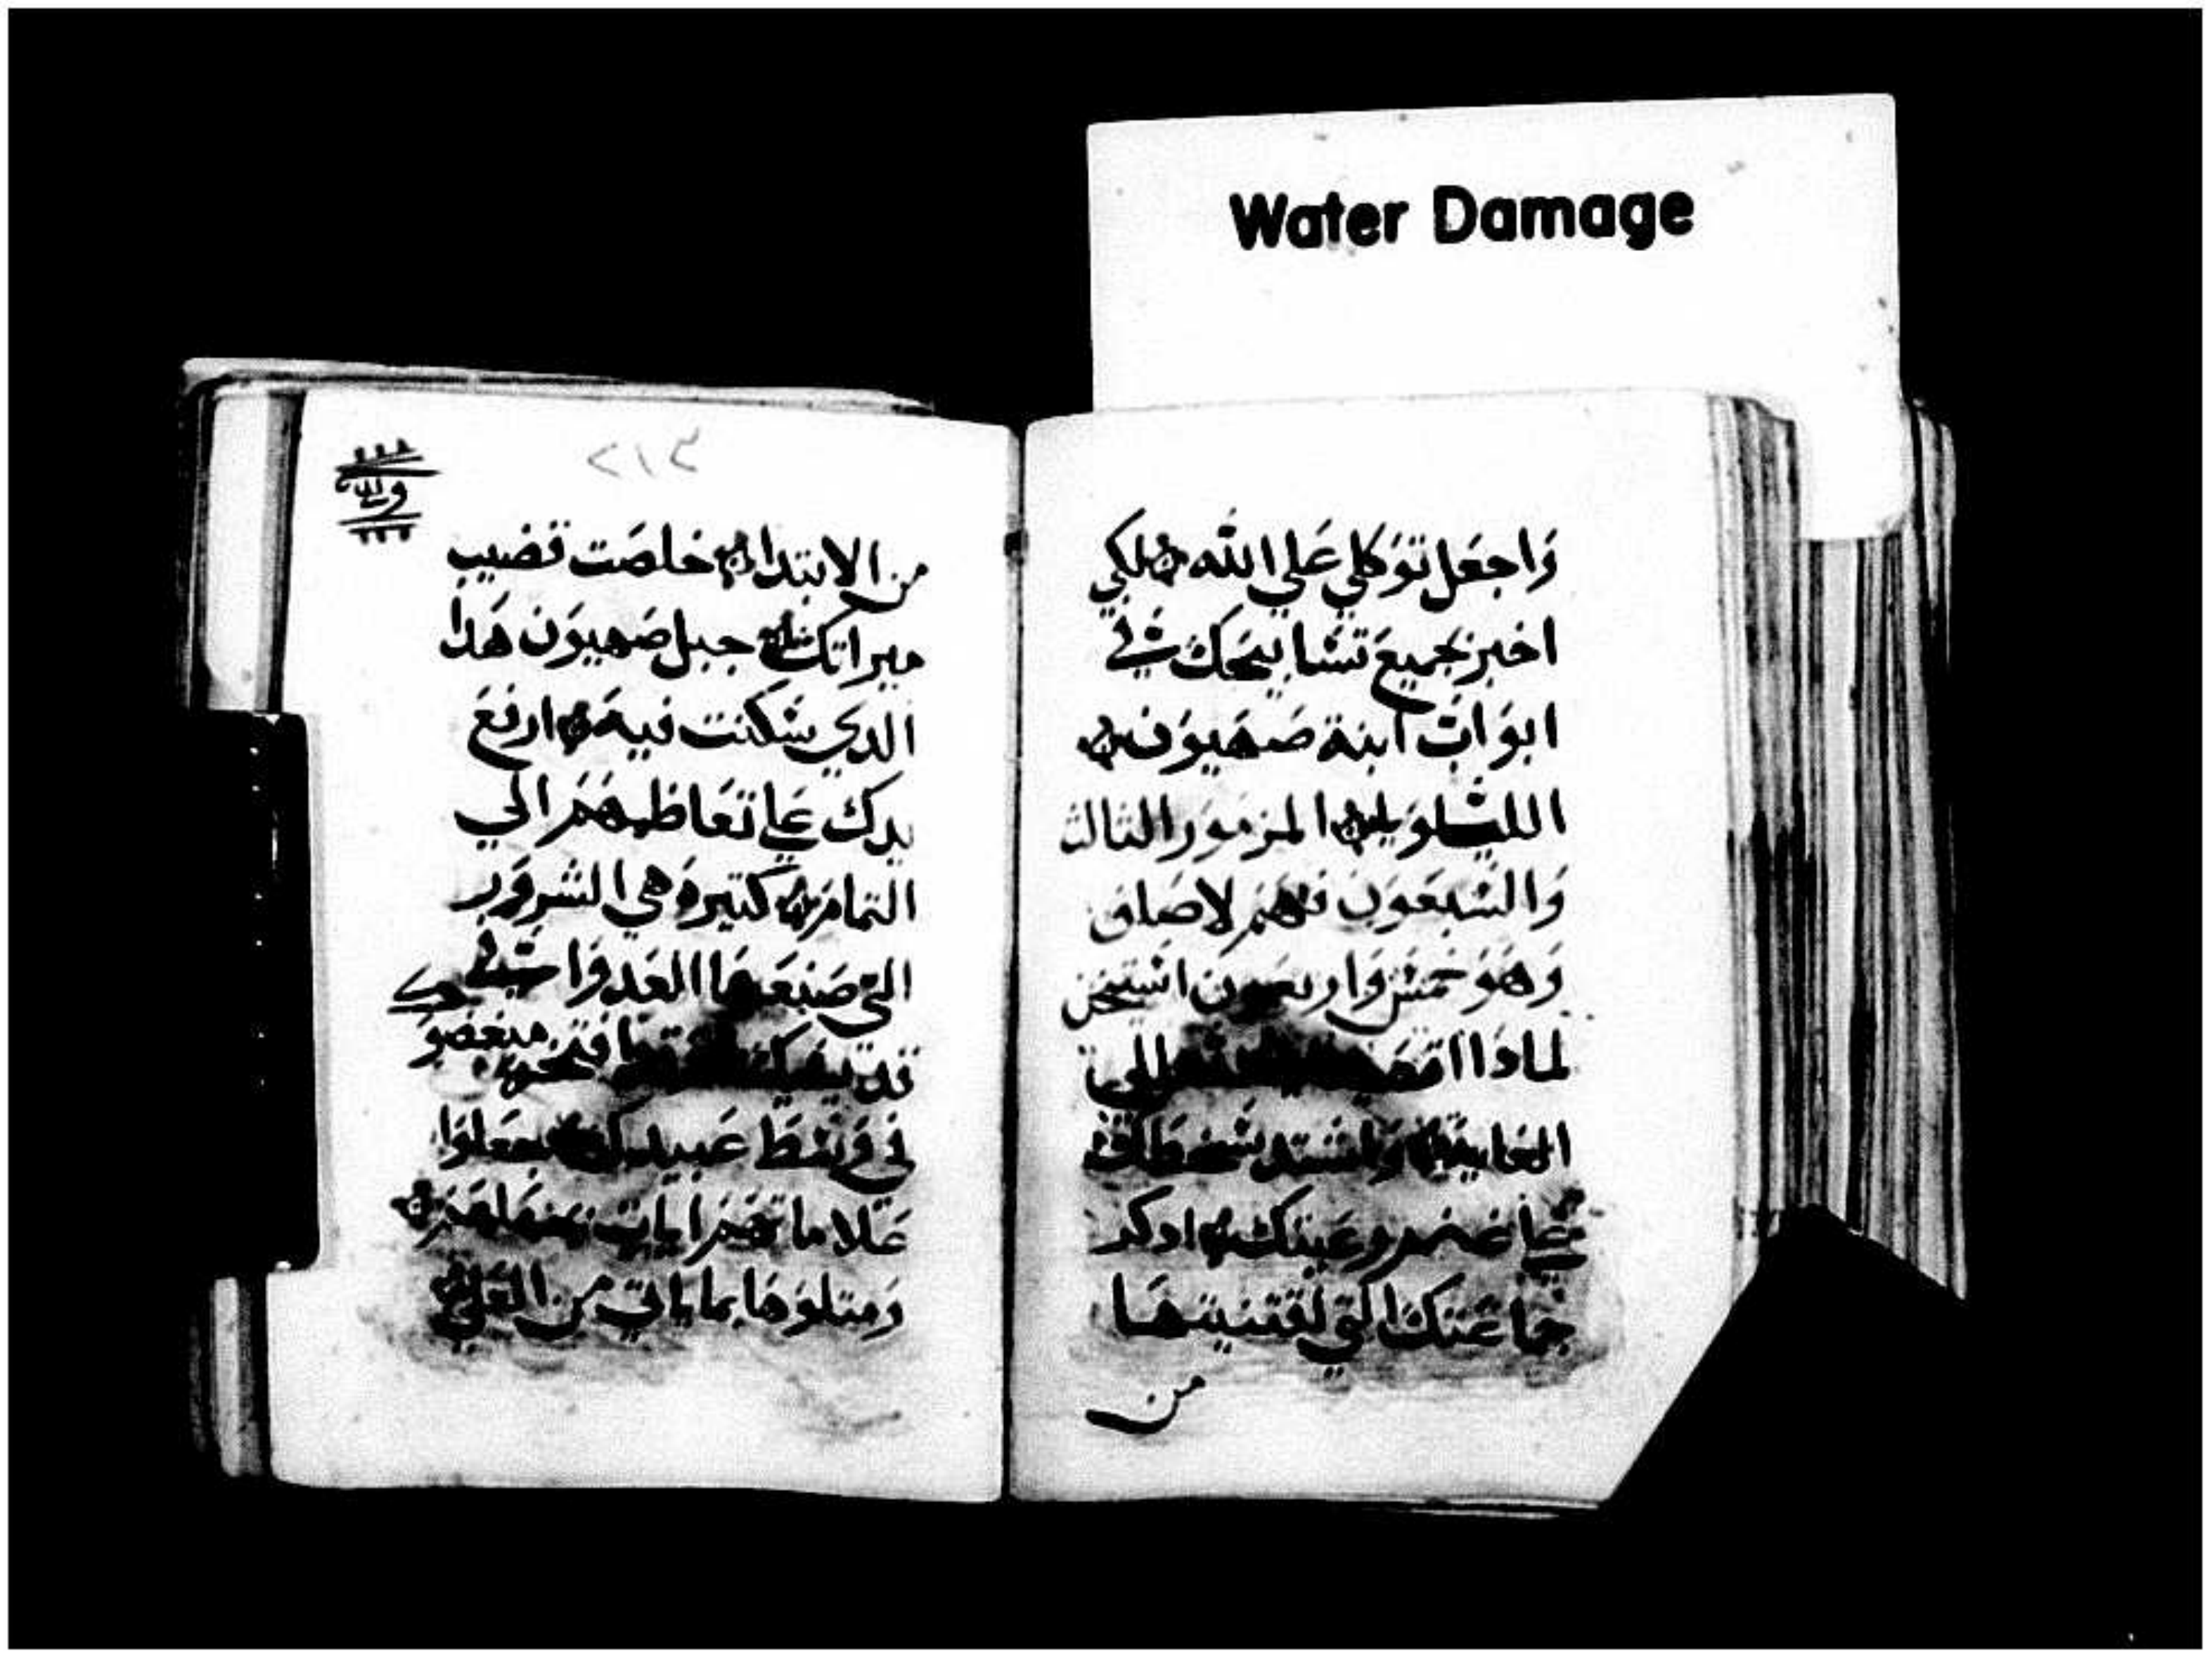 Water Damage
وَاجعَل تَوَكلي عَلي الله لكي
اخبر بجميعَ تسَابيحَكَ في
ابوَابَ ابنة صَهيوَن
الليلويا المزمور الثالث
وَالسَبعَون فهم لاصَاف
وَهوَ خمسَ وَاربعون استيخن
لماذا الله الي
الغاية وَاشتد سَخطك
علي غنم رعيتك اذكر
جماعَتك التي اقتنيتهَا
من
٢١٤
من الابتدا خلصَت قضيب
ميراتك جبل صَهيوَن هَدا
الدي سَكنت فيه ارفعَ
يدك علي تعَاظمهَم الي
التمام كتيرة هي الشرور
التي صَنعَهَا العَدوَ في
قديسيك مبغضوك
في وَسَط عَبيدك جعَلوا
عَلاماتهم ايات